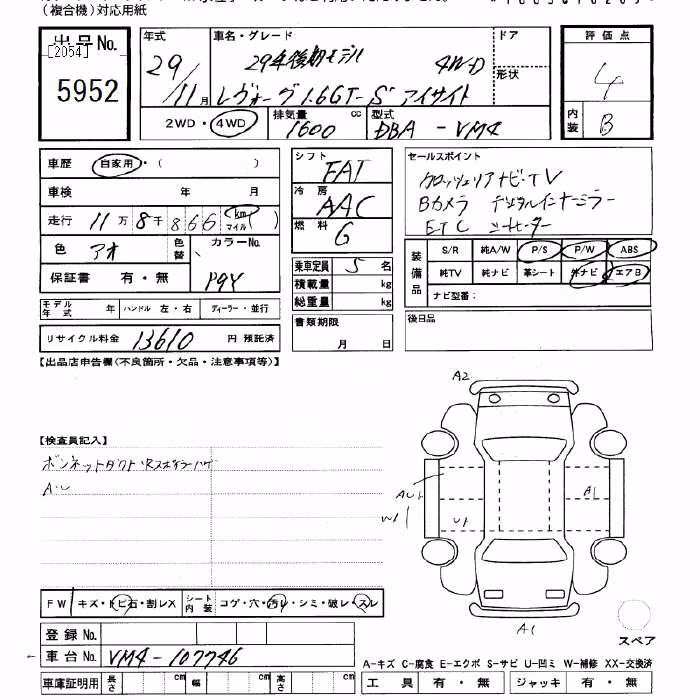 （複合機）対応用紙
出品No.
[2054]
5952
年式
29/11月
車名・グレード
29年後期モデル 4WD
レヴォーグ 1.6GT-S アイサイト
ドア
形状
2WD・4WD
排気量
1600 cc
型式
DBA-VM4
評価点
4
内装
B
車歴 自家用・（ ）
車検 年 月
走行 11万8千866 km マイル
色 アオ
色替
カラーNo.
P9Y
保証書 有・無
モデル年式 年 ハンドル 左・右 ディーラー・並行
リサイクル料金 13610 円 預託済
シフト FAT
冷房 AAC
燃料 G
乗車定員 5 名
積載量 kg
総重量 kg
書類期限 月 日
セールスポイント
カロッツェリアナビ・TV
Bカメラ デジタルインナーミラー
ETC シートヒーター
装備品
S/R 純A/W P/S P/W ABS
純TV 純ナビ 革シート 外ナビ エアB
ナビ型番：
後日品
【出品店申告欄(不良箇所・欠品・注意事項等)】
【検査員記入】
ボンネットダクト・Rスポイラーハゲ
A・U
A2
AU1
W1
U1
A1
A1
FW キズ・トビ石・割レX シート内装 コゲ・穴・汚レ・シミ・破レ・スレ
登録No.
車台No. VM4-107746
車庫証明用 長さ cm 幅 cm 高さ cm
スペア
A-キズ C-腐食 E-エクボ S-サビ U-凹ミ W-補修 XX-交換済
工具 有・無 ジャッキ 有・無